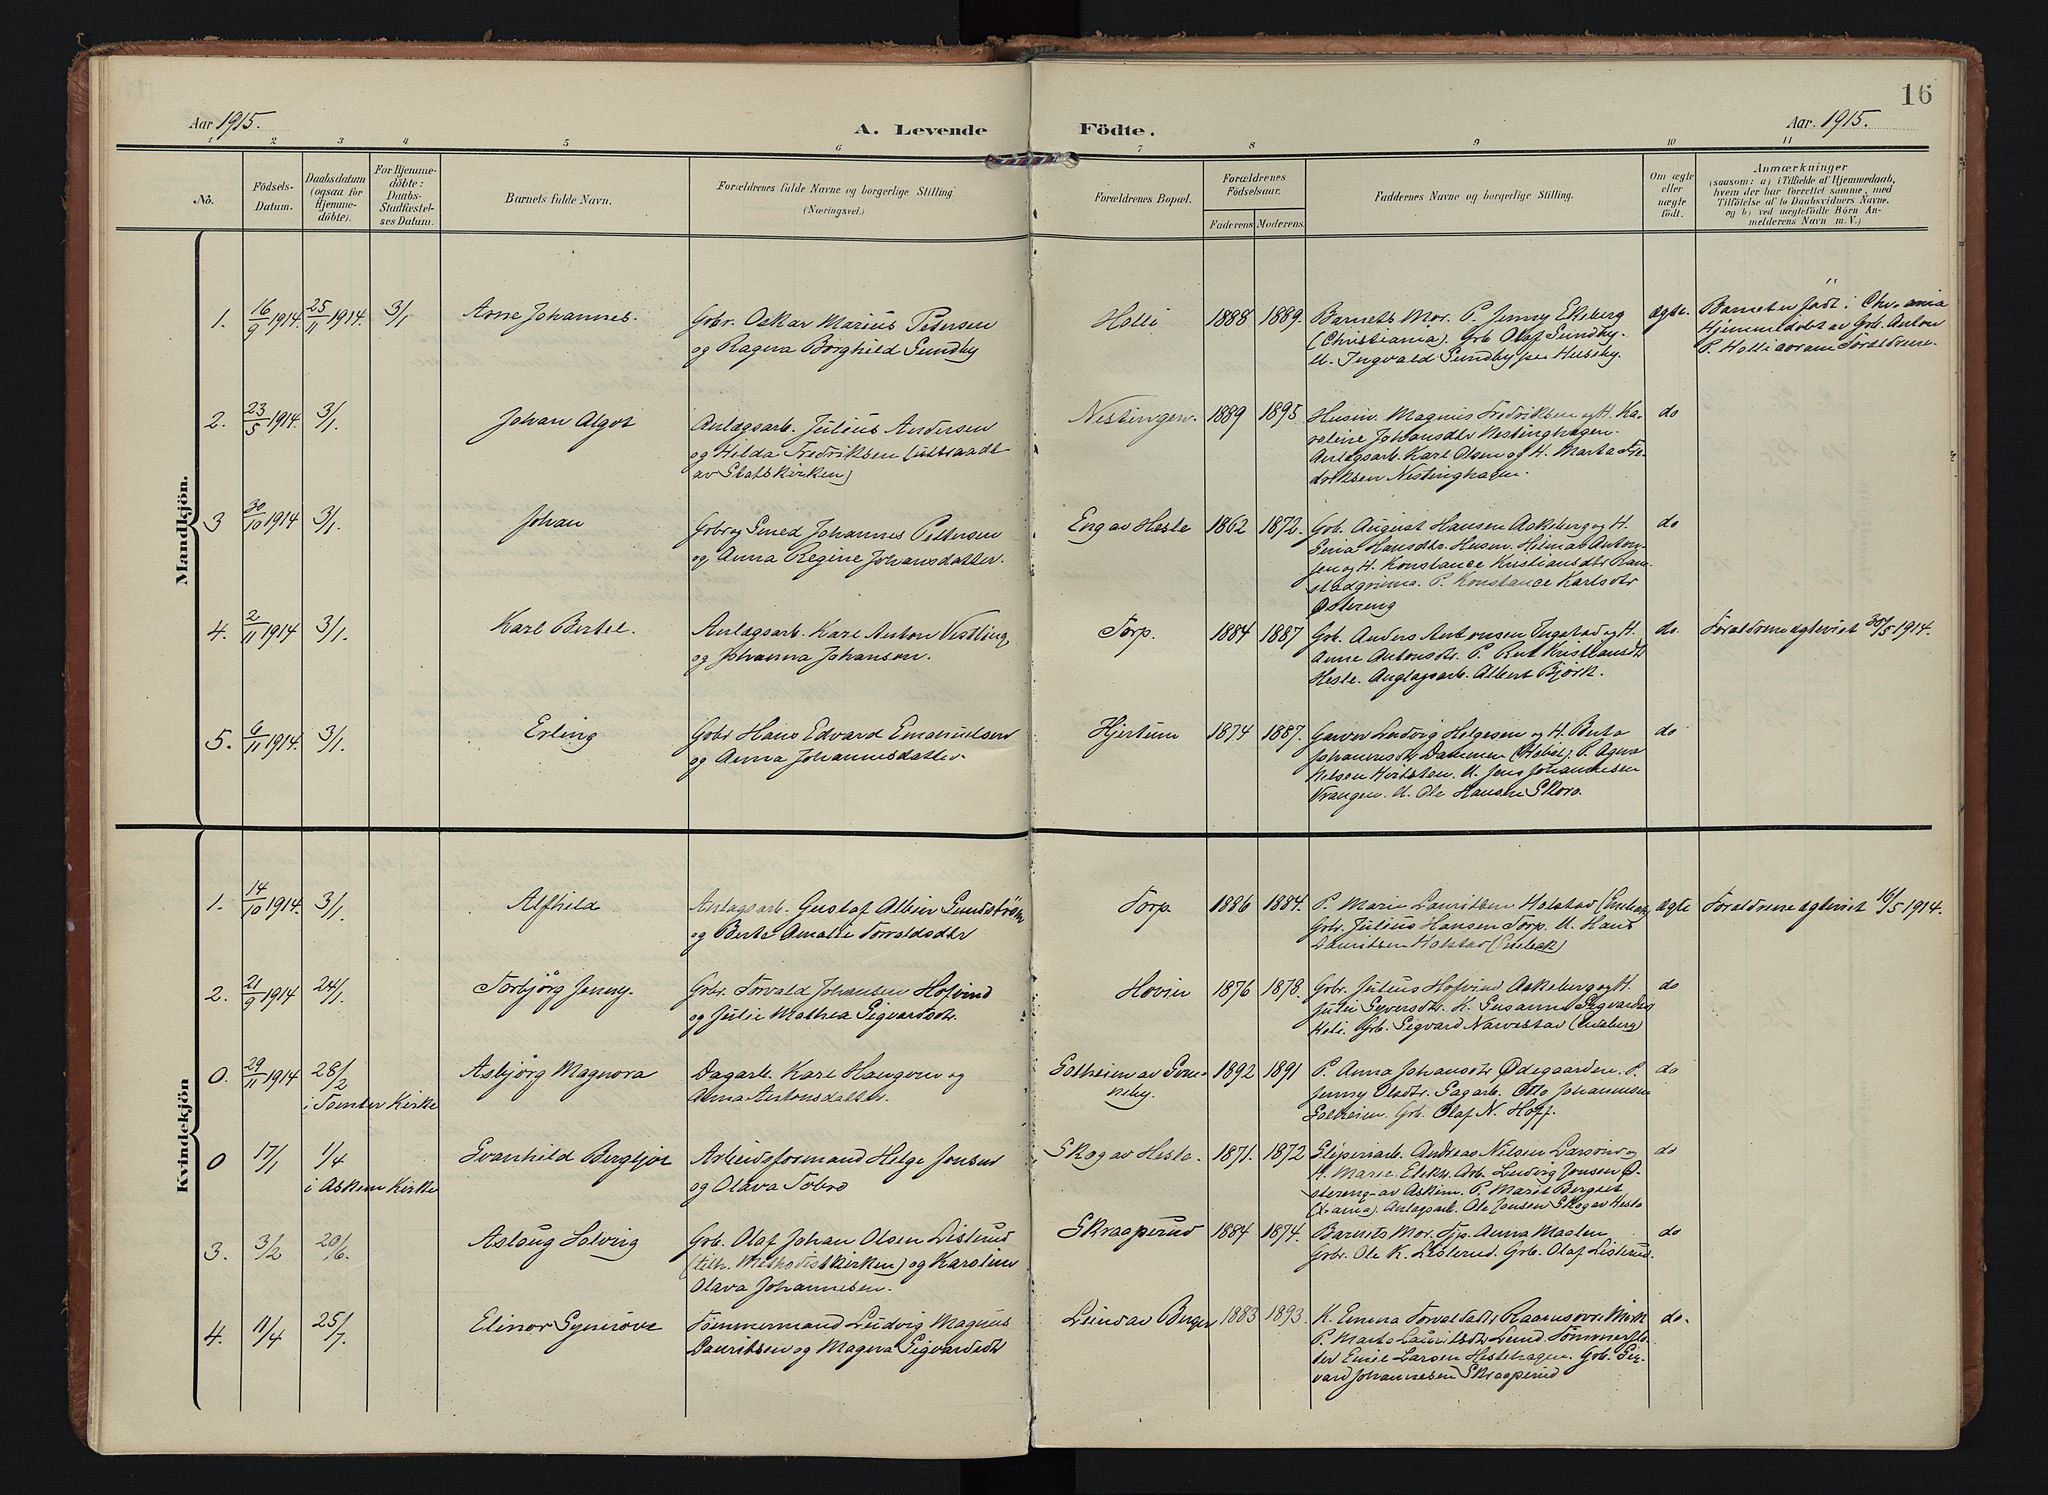 16
Aar 1915.
A. Levende
Födte.
Aar. 1915.
1 2 3 4 5 6 7 8 9 10 11
No.
Födsels-
Datum.
Daabsdatum
(ogsaa for
Hjemme-
döbte).
For Hjemme-
döbte:
Daabs-
Stadfæstel-
ses Datum.
Barnets fulde Navn.
Forældrenes fulde Navne og borgerlige Stilling
(Næringsvei.)
Forældrenes Bopæl.
Forældrenes
Födselsaar.
Faderens. Moderens.
Faddernes Navne og borgerlige Stilling.
Om ægte
eller
uægte
födt.
Anmærkninger
(saasom: a) i Tilfælde af Hjemmedaab,
hvem der har forrettet samme, med
Tilföielse af to Daabsvidners Navne,
og b) ved uægtefödte Börn An-
melderens Navn m. V.)
Mandkjön.
1. 16/9 1914. 25/11 1914. 3/1 Arne Johannes.
Gbr. Oskar Marius Pedersen
og Ragna Borghild Sundby
Holli 1888 1889.
Barnets Mor. P. Jenny Ekeberg
(Christiania). Grb Olaf Sundby.
U. Ingvald Sundby Huseby.
ægte.
Barnet er født i Chr.ania
Hjemmedøbt av Grb. Anton
P. Holli coram Forældrene.
2. 23/5 1914. 3/1. Johan Algot
Anlægsarb. Julius Andersen
og Hilda Fredriksen (uttraadt
av Statskirken)
Nestingen. 1889 1895
Husm. Magnus Fredriksen og H. Ka-
roline Johansdtr Nestinghagen.
Anlægsarb. Karl Olsen og H. Marta Fre-
driksen Nestinghagen.
do
3 30/10 1914 3/1. Johan
Gbr og Smed Johannes Pettersen
og Anna Regine Johansdatter.
Eng av Hesle 1862 1872.
Grb. August Hansen Askeberg og H.
Hansdtr. Husm. Hilmar Anton-
sen og H. Konstance Kristiansdtr Ram-
stadgrinna. P. Konstance Karlsdtr
Østereng
do
4. 2/11 1914 3/1. Karl Bertel.
Anlægsarb. Karl Anton Vestling
og Johanna Johanson.
Torp. 1884 1887
Grb. Anders Antonsen Ingstad og H.
Anne Antonsdtr. P. Rut Kristiansdtr
Hesle. Anglægsarb. Albert Björk.
do.
Forældrene ægteviet 30/5 1914.
5. 6/11 1914. 3/1. Erling
Gbr Hans Edvard Emanuelsen
og Anna Johannesdatter.
Hjertum 1874 1887.
Garver Ludvig Helgesen og H. Berta
Johannesdtr Dammen (Hobøl). P. Agna
Nilsen Hvitsten. U. Jens Johannesen
Vrangen. U. Ole Hansen Skoro.
do
Kvindekjön
1. 14/10 1914. 3/1. Alfhild
Anlægsarb. Gustaf Albin Sundström
og Berte Amalie Torvaldsdtr
Torp. 1886 1884.
P. Marie Lauritsen Holstad
Grb. Julius Hansen Torp. U. Hans
Lauritsen Holstad
ægte
Forældrene ægteviet 16/5 1914.
2. 21/9 1914 24/1. Torbjørg Jenny.
Gbr. Torvald Johansen Hofvind
og Julie Mathea Sigvardsdtr.
Hovin 1876 1878.
Gbr. Julius Hofvind Askeberg og H.
Julie Syversdtr. K. Susanne Sigvardsdtr
Heli. Grb. Sigvard Narvestad
do
0. 29/11 1914 28/2 Asbjörg Magnora
i Tomter Kirke
Dagarb. Karl Haugom og
Anna Antonsdatter.
Solheim av Sun-
neby. 1892 1891
P. Anna Johansdtr Ødegaarden. P.
Jenny Olsdtr. Sagarb. Otto Johannesen
Solheim. Grb. Olaf N. Hoff.
do
0 17/1 1/4 Svanhild Bergljot
i Askim Kirke
Arbeidsformand Helge Jonsen
og Olava Tobro
Skog av Hesle. 1871. 1872
Sliperiarb. Andreas Nilsen Larsen og
H. Marie Arb. Ludvig Jonsen Ø-
stereng av Askim. P. Marit Bergset
(X.ania). Anlægsarb. Ole Jonsen Skog av Hesle
do
3. 3/2 20/6. Aslaug Solveig
Grb. Olaf Johan Olsen Listerud
(tilh. Methodistkirken) og Karoline
Olava Johannesen.
Skraaperud 1884 1874.
Barnets Mor. Tjp. Anna Moslen
Grbr. Ole K. Listerud. Grb. Olaf Listerud.
do
4. 11/4 25/7. Elinor Synnöve
Tömmermand Ludvig Magnus
Lauritsen og Magna Sigvardsdtr
Lund av Berger 1883 1893.
K. Emma Torvaldsdtr
P. Marta Lauritsdtr Lund. Tömmerflø-
ter Emil Larsen Heslehagen. Grb. Sig-
vard Johannesen Skraaperud
do.